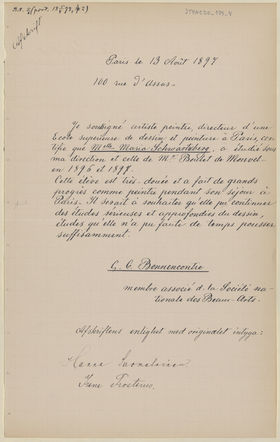 Afskrift
Paris le 13 Août 1897
100 rue d'Assas
Je soussigné artiste peintre, directeur d'une
Ecole superieure de dessin et peinture à Paris, cer-
tifie que Melle Maria Schwartzberg, a étudié sous
ma direction et celle de Mr Boutet de Monvel
en 1896 et 1897.
Cette élève est très-douée et a fait de grands
progrès comme peintre pendant son séjour à
Paris. Il serait à souhaiter qu'elle pu continuer
des études serieuses et approfondies du dessin,
études qu'elle n'a pu faute de temps pousser
suffisamment.
C. C. Bonnencontre
membre associé d. la Société na-
tionale des Beaux-Arts.
Afskriftens enlighet med originalet intyga: